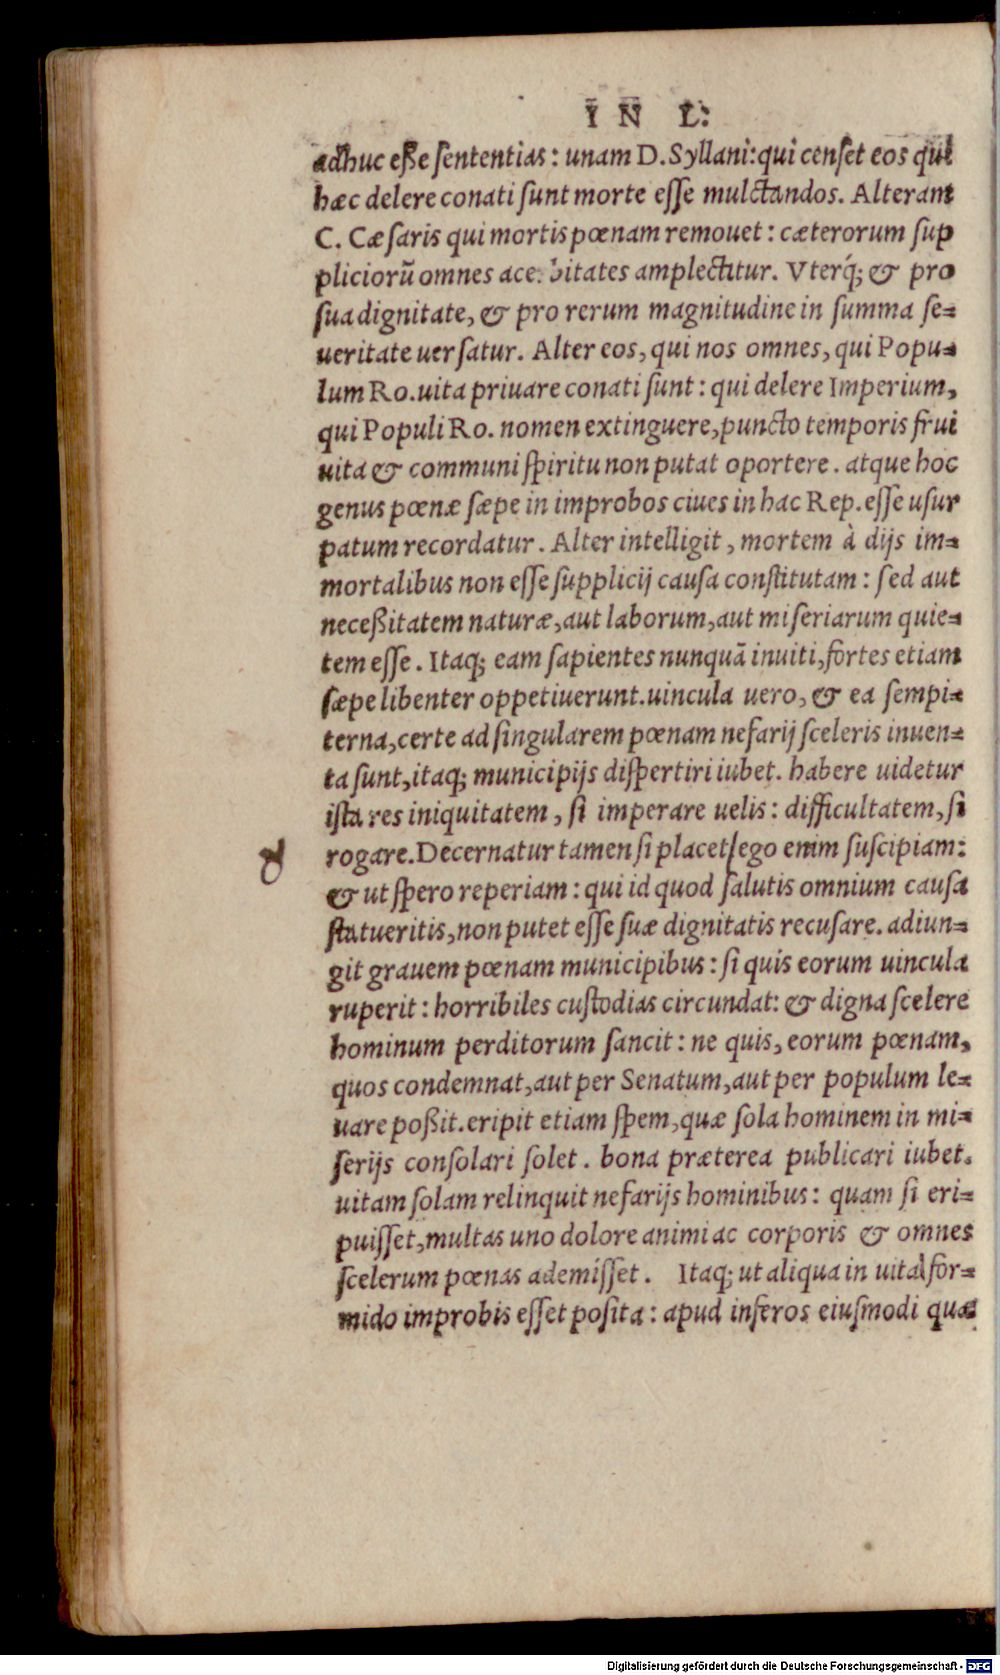 IN L:
adhuc eße ſententias: unam D. Syllani: qui cenſet eos qui
hæc delere conati ſunt morte eſſe mulctandos. Alteram
C. Cæſaris qui mortis pœnam remouet: cæterorum ſup
pliciorũ omnes acerbitates amplectitur. Vterq́; & pro
ſua dignitate, & pro rerum magnitudine in ſumma ſe-
ueritate uerſatur. Alter eos, qui nos omnes, qui Popu-
lum Ro. uita priuare conati ſunt: qui delere Imperium,
qui Populi Ro. nomen extinguere, puncto temporis frui
uita & communi ſpiritu non putat oportere. atque hoc
genus pœnæ ſæpe in improbos ciues in hac Rep. eſſe uſur
patum recordatur. Alter intelligit, mortem à dijs im-
mortalibus non eſſe ſupplicij cauſa conſtitutam: ſed aut
neceßitatem naturæ, aut laborum, aut miſeriarum quie-
tem eſſe. Itaq; eam ſapientes nunquã inuiti, fortes etiam
ſæpe libenter oppetiuerunt. uincula uero, & ea ſempi-
terna, certe ad ſingularem pœnam nefarij ſceleris inuen-
ta ſunt, itaq; municipijs diſpertiri iubet. habere uidetur
iſta res iniquitatem, ſi imperare uelis: difficultatem, ſi
rogare. Decernatur tamen ſi placet ego enim ſuſcipiam:
& ut ſpero reperiam: qui id quod ſalutis omnium cauſa
ſtatueritis, non putet eſſe ſuæ dignitatis recuſare. adiun-
git grauem pœnam municipibus: ſi quis eorum uincula
ruperit: horribiles cuſtodias circundat: & digna ſcelere
hominum perditorum ſancit: ne quis, eorum pœnam,
quos condemnat, aut per Senatum, aut per populum le-
uare poßit. eripit etiam ſpem, quæ ſola hominem in mi-
ſerijs conſolari ſolet. bona præterea publicari iubet.
uitam ſolam relinquit nefarijs hominibus: quam ſi eri-
puiſſet, multas uno dolore animi ac corporis & omnes
ſcelerum pœnas ademiſſet. Itaq; ut aliqua in uita for-
mido improbis eſſet poſita: apud inferos eiuſmodi quæ
Digitalisierung gefördert durch die Deutsche Forschungsgemeinschaft - DFG